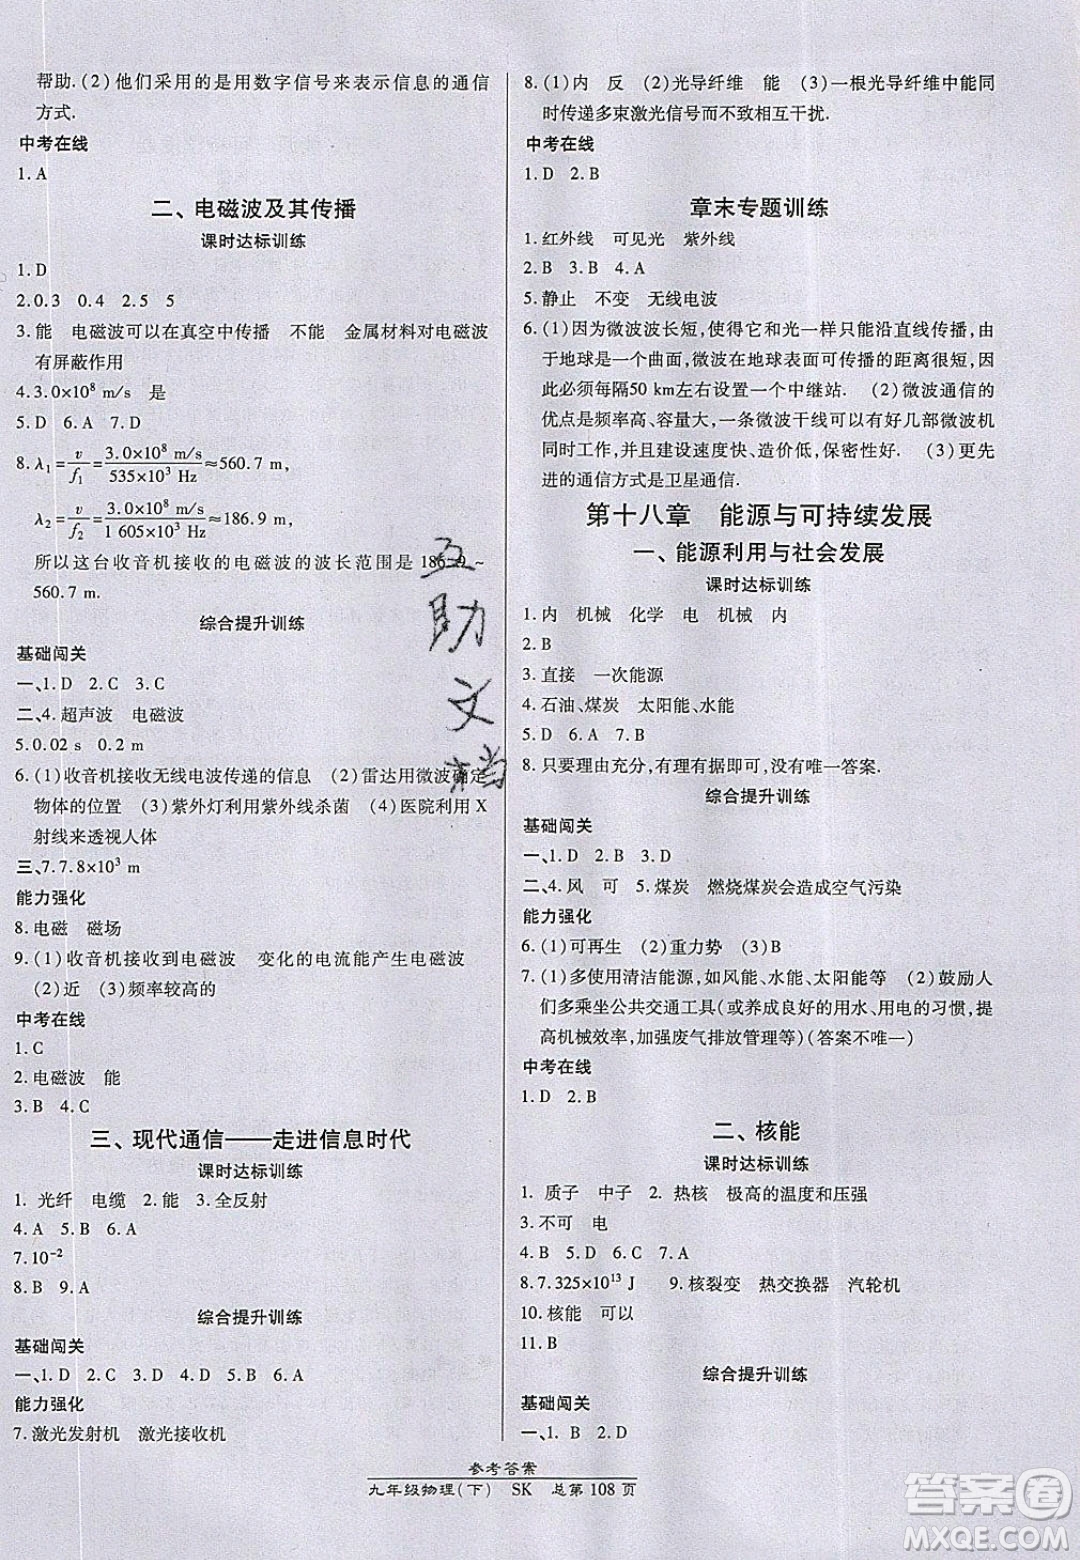 帮助.(2)他们采用的是用数字信号来表示信息的通信
方式.
中考在线
1.A
二、电磁波及其传播
课时达标训练
1.D
2.0.3 0.4 2.5 5
3.能 电磁波可以在真空中传播 不能 金属材料对电磁波
有屏蔽作用
4.3.0×10⁸ m/s 是
5.D 6.A 7.D
8.λ₁=v/f₁=3.0×10⁸ m/s/535×10³ Hz≈560.7 m,
λ₂=v/f₂=3.0×10⁸ m/s/1 605×10³ Hz≈186.9 m,
所以这台收音机接收的电磁波的波长范围是186.9~
560.7 m.
综合提升训练
基础闯关
一、1.D 2.C 3.C
二、4.超声波 电磁波
5.0.02 s 0.2 m
6.(1)收音机接收无线电波传递的信息 (2)雷达用微波确定
物体的位置 (3)紫外灯利用紫外线杀菌 (4)医院利用X
射线来透视人体
三、7.7.8×10³ m
能力强化
8.电磁 磁场
9.(1)收音机接收到电磁波 变化的电流能产生电磁波
(2)近 (3)频率较高的
中考在线
1.C
2.电磁波 能
3.B 4.C
三、现代通信——走进信息时代
课时达标训练
1. 光纤 电缆 2.能 3.全反射
4.A 5.B 6.A
7.10⁻²
8.B 9.A
综合提升训练
基础闯关
一、1.D 2.C 3.D 4.D 5.B 6.B
能力强化
7.激光发射机 激光接收机
8.(1)内 反 (2)光导纤维 能 (3)一根光导纤维中能同
时传递多束激光信号而不致相互干扰.
中考在线
1.D 2.B
章末专题训练
1.红外线 可见光 紫外线
2.B 3.B 4.A
5.静止 不变 无线电波
6.(1)因为微波波长短,使得它和光一样只能沿直线传播,由
于地球是一个曲面,微波在地球表面可传播的距离很短,因
此必须每隔50 km左右设置一个中继站. (2)微波通信的
优点是频率高、容量大,一条微波干线可以有好几部微波机
同时工作,并且建设速度快、造价低,保密性好. (3)更先
进的通信方式是卫星通信.
第十八章 能源与可持续发展
一、能源利用与社会发展
课时达标训练
1.内 机械 化学 电 机械 内
2.B
3.直接 一次能源
4.石油、煤炭 太阳能、水能
5.D 6.A 7.B
8.只要理由充分,有理有据即可,无唯一答案.
综合提升训练
基础闯关
一、1.D 2.B 3.D
二、4.风 可 5.煤炭 燃烧煤炭会造成空气污染
能力强化
6.(1)可再生 (2)重力势 (3)B
7.(1)多使用清洁能源,如风能、水能、太阳能等 (2)鼓励人
们多乘坐公共交通工具(或养成良好的用水、用电的习惯,提
高机械效率,加强废气排放管理等)(答案不唯一)
中考在线
1.D 2.B
二、核能
课时达标训练
1. 质子 中子 2. 热核 极高的温度和压强
3.不可 电
4.B 5.D 6.C 7.A
8.7.325×10¹³ J 9.核裂变 热交换器 汽轮机
10.核能 可以
11.B
综合提升训练
基础闯关
一、1. B 2.D
互
助
文
档
参考答案
九年级物理(下) SK 总第 108 页
答案圈
MXQE.COM